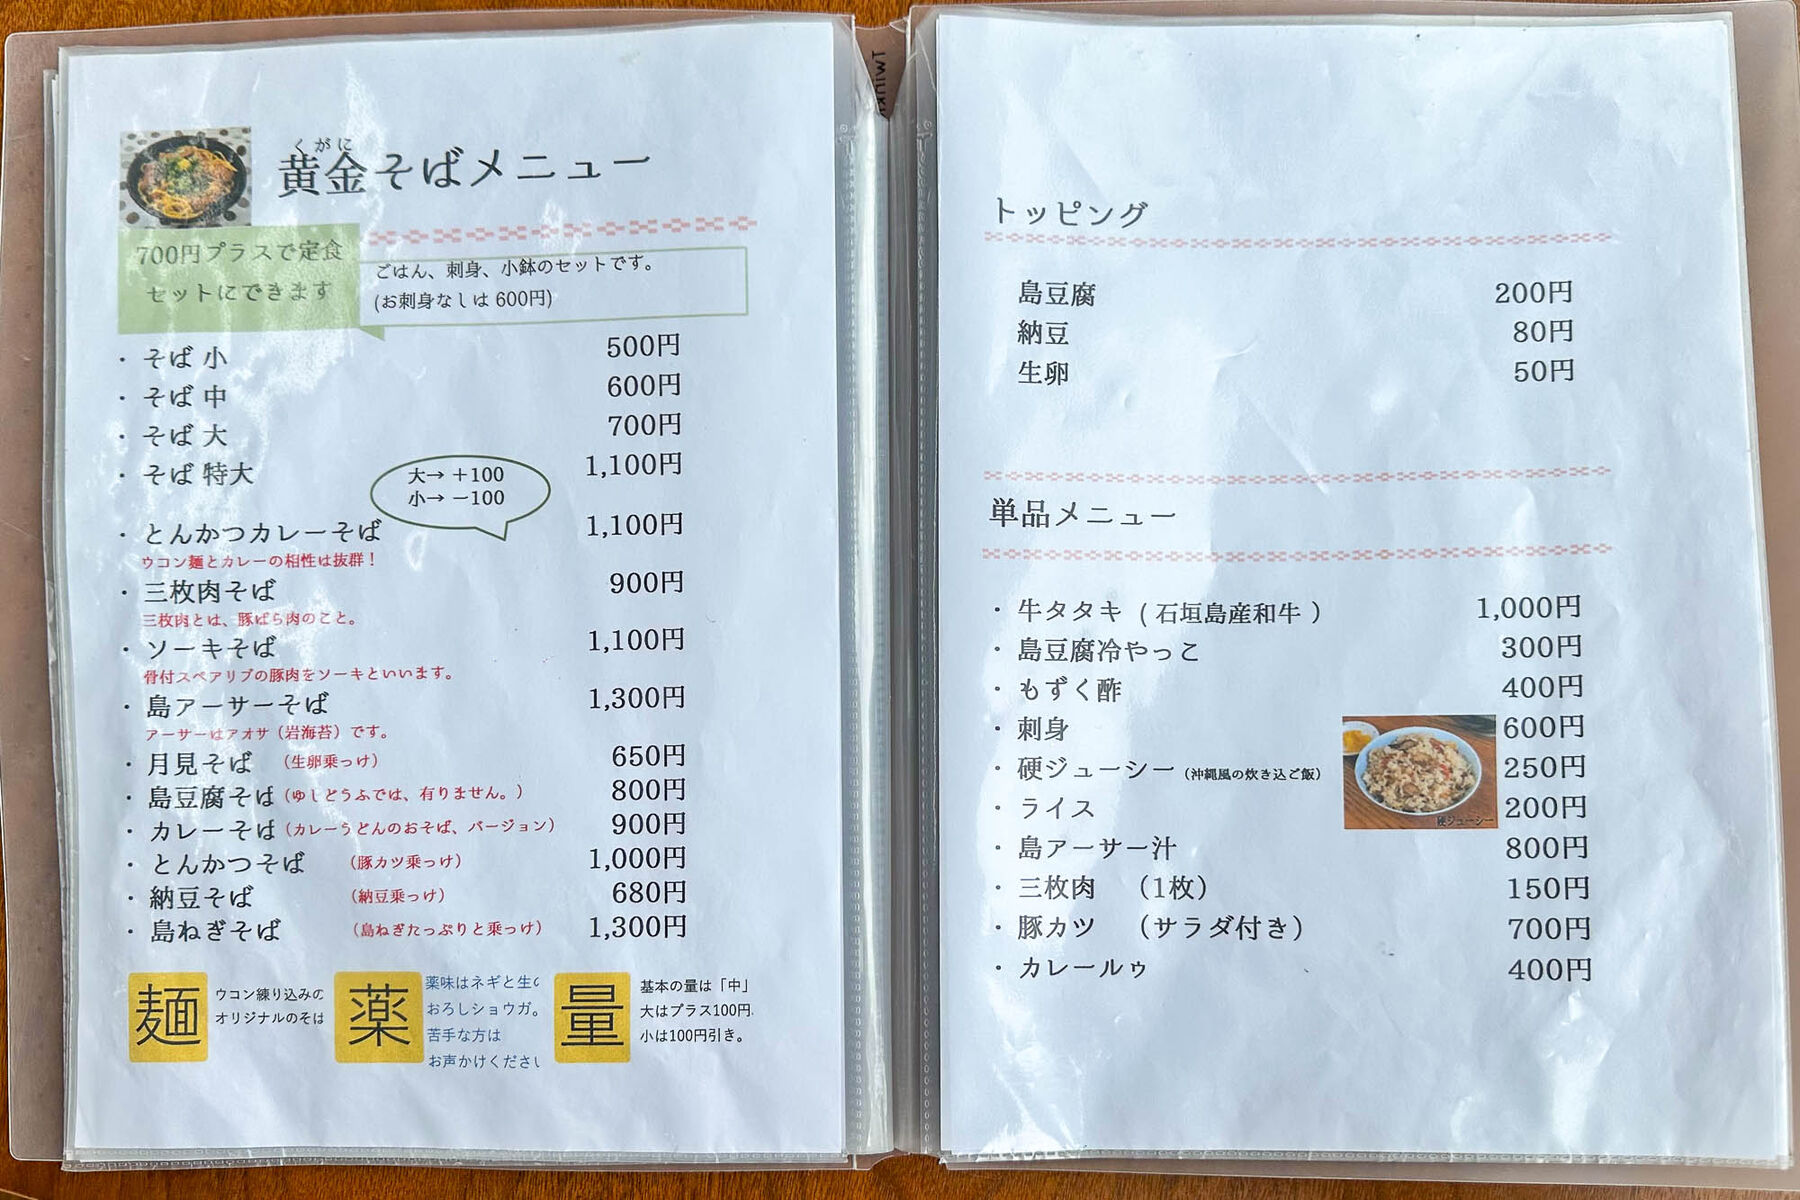 くがに
黄金そばメニュー
700円プラスで定食
セットにできます
ごはん、刺身、小鉢のセットです。
(お刺身なしは 600円)
・そば 小 500円
・そば 中 600円
・そば 大 700円
・そば 特大 1,100円
大→ +100
小→ −100
・とんかつカレーそば 1,100円
ウコン麺とカレーの相性は抜群!
・三枚肉そば 900円
三枚肉とは、豚ばら肉のこと。
・ソーキそば 1,100円
骨付スペアリブの豚肉をソーキといいます。
・島アーサーそば 1,300円
アーサーはアオサ(岩海苔)です。
・月見そば (生卵乗っけ) 650円
・島豆腐そば (ゆしどうふでは、有りません。) 800円
・カレーそば (カレーうどんのおそば、バージョン) 900円
・とんかつそば (豚カツ乗っけ) 1,000円
・納豆そば (納豆乗っけ) 680円
・島ねぎそば (島ねぎたっぷりと乗っけ) 1,300円
麺
ウコン練り込みの
オリジナルのそば
薬
薬味はネギと生の
おろしショウガ。
苦手な方は
お声かけください
量
基本の量は「中」
大はプラス100円、
小は100円引き。
トッピング
島豆腐 200円
納豆 80円
生卵 50円
単品メニュー
・牛タタキ (石垣島産和牛) 1,000円
・島豆腐冷やっこ 300円
・もずく酢 400円
・刺身 600円
・硬ジューシー (沖縄風の炊き込ご飯) 250円
・ライス 200円
硬ジューシー
・島アーサー汁 800円
・三枚肉 (1枚) 150円
・豚カツ (サラダ付き) 700円
・カレールゥ 400円